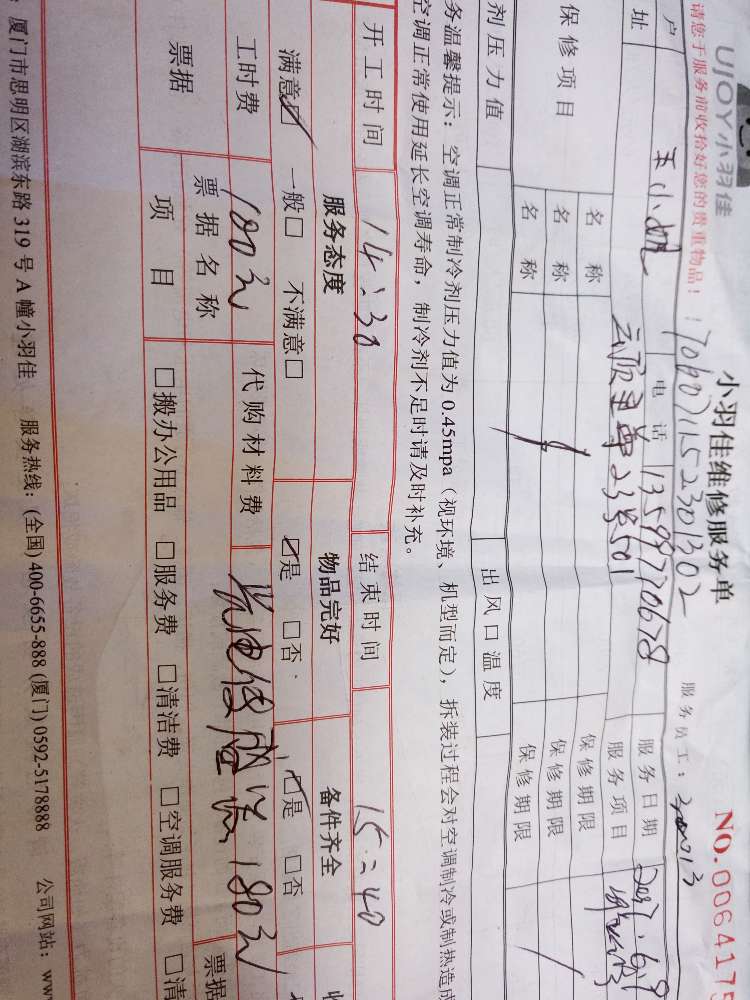 UJOY小羽佳
小羽佳维修服务单
NO.0064175
请您于服务前收拾好您的贵重物品！
1706071152301302
服务员工：
户 王小姐 电话 13599770678 服务日期
址 云顶至尊 服务项目
保修项目 名称 保修期限
名称 保修期限
名称 保修期限
剂压力值 出风口温度
务温馨提示：空调正常制冷剂压力值为 0.45mpa（视环境、机型而定），拆装过程会对空调制冷或制热造成
空调正常使用延长空调寿命，制冷剂不足时请及时补充。
开工时间 14：30 结束时间 15：40
服务态度 物品完好 备件齐全
满意☑ 一般□ 不满意□ ☑是 □否 ☑是 □否
工时费 100元 代购材料费 180元
票据 票据名称 票据
项目 □搬办公用品 □服务费 □清洁费 □空调服务费 □清
：厦门市思明区湖滨东路 319 号 A 幢小羽佳 服务热线：(全国) 400-6655-888 (厦门) 0592-5178888 公司网站：ww